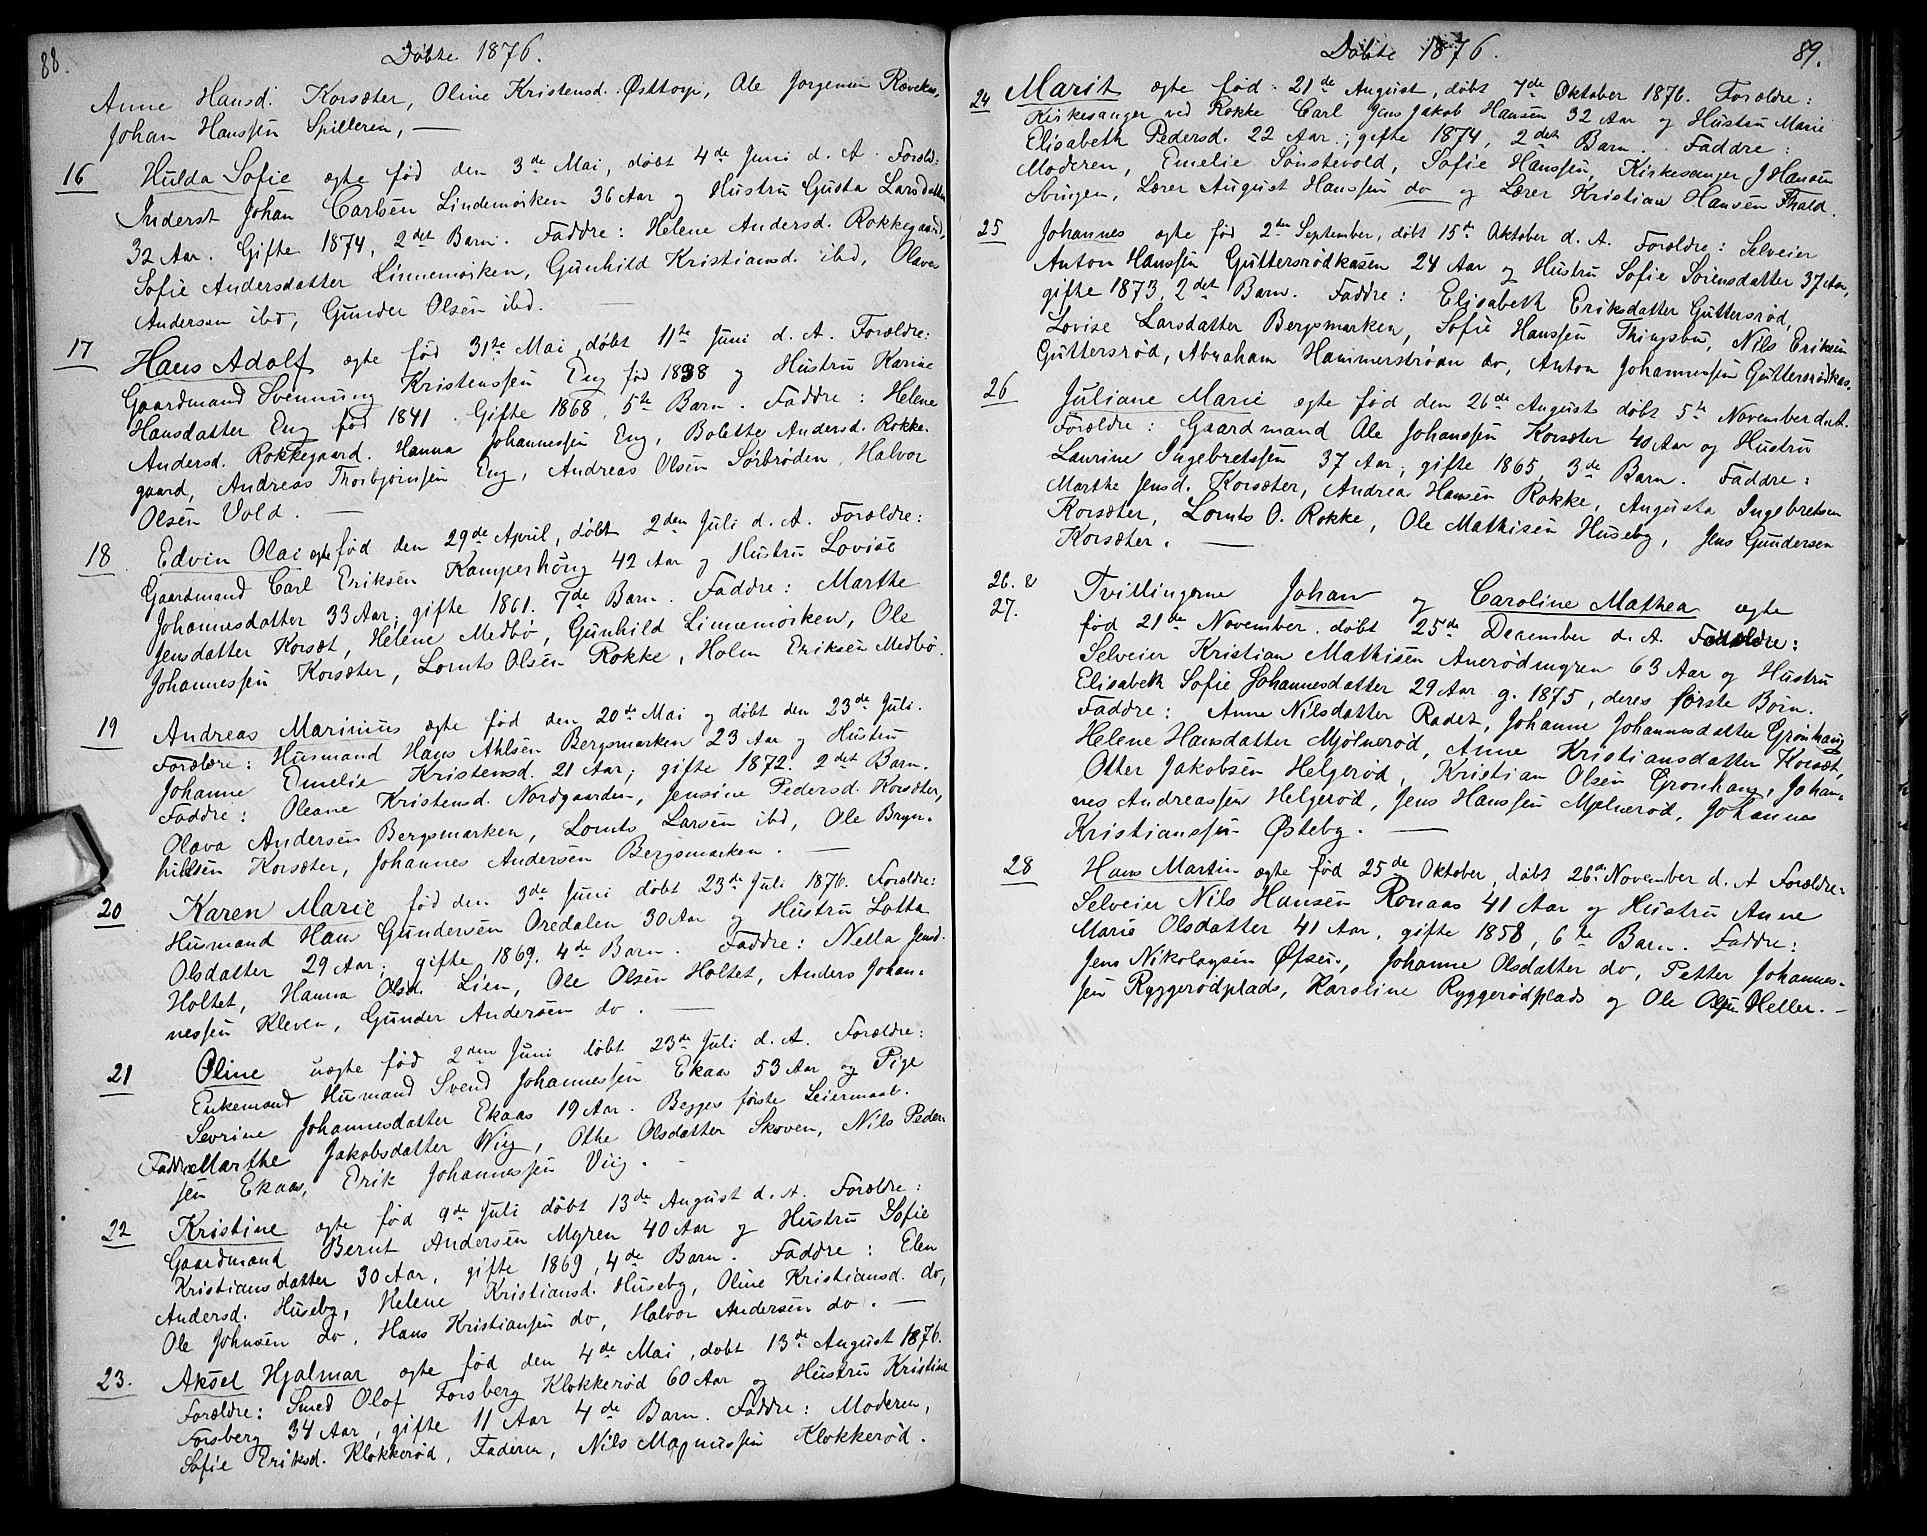 88.
Döbte 1876.
Anne Hansd. Korsæter, Oline Kristensd. Østtorp, Ole Jorgensen
Johan Hanssen Spilleren, —
16 Hulda Sofie ægte fød den 3de Mai, döbt 4de Juni d. A. Foræld:
Inderst Johan Carlsen Lindemoiken 36 Aar og Hustru Gusta Larsdatter
32 Aar. Gifte 1874, 2det Barn. Faddre: Helene Andersd. Rokkegaard,
Sofie Andersdatter Linnemoiken, Gunhild Kristiansd. ibd, Olaves
Andersen ibd, Gunder Olsen ibd. —
17 Hans Adolf ægte fød 31te Mai döbt 11te Juni d. A. Forældre:
Gaardmand Svennung Kristenssen Eng fød 1838 og Hustru Karine
Hansdatter Eng fød 1841. Gifte 1868, 5te Barn. Faddre: Helene
Andersd. Rokkegaard. Hanna Johannessen Eng, Bolette Andersd. Rokke-
gaard, Andreas Thorbjørnsen Eng, Andreas Olsen Sörbröden, Halvor
Olsen Vold. —
18 Edvin Olai ægte fød den 29de April, döbt 2den Juli d. A. Forældre:
Gaardmand Carl Eriksen Kamperhöug 42 Aar og Hustru Lovise
Johannesdatter 33 Aar; gifte 1861. 7de Barn. Faddre: Marthe
Jensdatter Korsæt, Helene Medbö, Gunhild Linnemoiken, Ole
Johannessen Korsæter, Lornts Olsen Rokke, Holm Eriksen Medbö.
19 Andreas Marinius ægte fød den 20de Mai og döbt den 23de Juli.
Forældre: Husmand Hans Ahlsen Bergsmarken 23 Aar og Hustru
Johanne Emelie Kristensd. 21 Aar; gifte 1872. 2det Barn.
Faddre: Oleane Kristensd. Nordgaarden, Jensine Pedersd. Korsæter,
Olava Andersen Bergsmarken, Lornts Larsen ibd, Ole Bryn-
hildsen Korsæter, Johannes Andersen Bergsmarken. —
20 Karen Marie fød den 3de Juni döbt 23de Juli 1876. Forældre:
Husmand Hans Gundersen Oredalen 30 Aar og Hustru Lotta
Olsdatter 29 Aar; gifte 1869. 4de Barn. Faddre: Nella Jensd.
Holtet, Hanna Olsd. Lien, Ole Olsen Holtet, Anders Johan-
nessen Kleven, Gunder Andersen do. —
21 Oline uægte fød 2den Juni döbt 23de Juli d. A. Forældre:
Enkemand Husmand Svend Johannessen Ekaas 53 Aar og Pige
Sevrine Johannesdatter Ekaas 19 Aar. Begges første Leiermaal.
Faddre Marthe Jakobsdatter Wiig, Othe Olsdatter Skoven, Nils Peder-
sen Ekaas, Erik Johannessen Viig. —
22 Kristine ægte fød 9de Juli döbt 13de August d. A. Forældre:
Gaardmand Bernt Andersen Myren 40 Aar og Hustru Sofie
Kristiansdatter 30 Aar, gifte 1869, 4de Barn. Faddre: Elen
Andersd. Huseby, Helene Kristiansd. Huseby, Oline Kristiansd. do,
Ole Johnsen do, Hans Kristiansen do, Halvor Andersen do. —
23. Aksel Hjalmar ægte fød den 4de Mai, døbt 13de August 1876.
Forældre: Smed Olof Forsberg Klokkerød 60 Aar og Hustru Kristine
Forsberg 34 Aar, gifte 11 Aar 4de Barn. Faddre: Moderen,
Sofie Eriksd. Klokkerød, Faderen, Nils Magnussen Klokkerød.
Döbte 1876.
89.
24 Marit ægte fød 21de August, døbt 7de Oktober 1876. Forældre:
Kirkesanger ved Rokke Carl Jens Jakob Hansen 32 Aar og Hustru Marie
Elisabeth Pedersd. 22 Aar; gifte 1874, 2det Barn. Faddre:
Moderen, Emelie Sonstevold, Sofie Hanssen, Kirkesanger J Hansen
Lærer August Hanssen do og Lærer Kristian Hansen
25 Johannes ægte fød 2den September, døbt 15de Oktober d. A. Forældre: Selveier
Anton Hanssen Guttersrödkasen 24 Aar og Hustru Sofie Sörensdatter 37 Aar,
gifte 1873, 2det Barn. Faddre: Elisabeth Eriksdatter Guttersröd,
Lovise Larsdatter Bergsmarken, Sofie Hanssen Thingsbu, Nils Eriksen
Guttersröd, Abraham Hammerström do, Anton Johannessen Guttersrödkas.
26 Juliane Marie ægte fød den 26de August döbt 5te November d. A.
Forældre: Gaardmand Ole Johanssen Korsæter 40 Aar og Hustru
Laurine Ingebretssen 37 Aar, gifte 1865, 3de Barn. Faddre:
Marthe Jensd. Korsæter, Andrea Hansen Rokke, Augusta Ingebretsen
Korsæter, Lornts O. Rokke, Ole Mathisen Huseby, Jens Gundersen
Korsæter. —
26. & 27. Tvillingerne Johan og Caroline Mathea ægte
fød 21de November. døbt 25de December d. A. Forældre:
Selveier Kristian Mathisen Anerödmyren 63 Aar og Hustru
Elisabeth Sofie Johannesdatter 29 Aar g. 1875, deres første Børn.
Faddre: Anne Nilsdatter Radet, Johanne Johannesdatter Grönhaug
Helene Hansdatter Mjölneröd, Anne Kristiansdatter Korsæt,
Otter Jakobsen Helgeröd, Kristian Olsen Gronhaug, Johan-
nes Andreassen Helgeröd, Jens Hanssen Mjølneröd, Johannes
Kristianssen Østeby. —
28 Hans Martin ægte fød 25de Oktober, døbt 26de November d. A Forældre:
Selveier Nils Hansen Ronaas 41 Aar og Hustru Anne
Marie Olsdatter 41 Aar, gifte 1858, 6te Barn. Faddre:
Jens Nikolaysen Øfsen, Johanne Olsdatter do, Petter Johannes-
sen Ryggerödplads, Karoline Ryggerödplads og Ole Olsen Heller. —